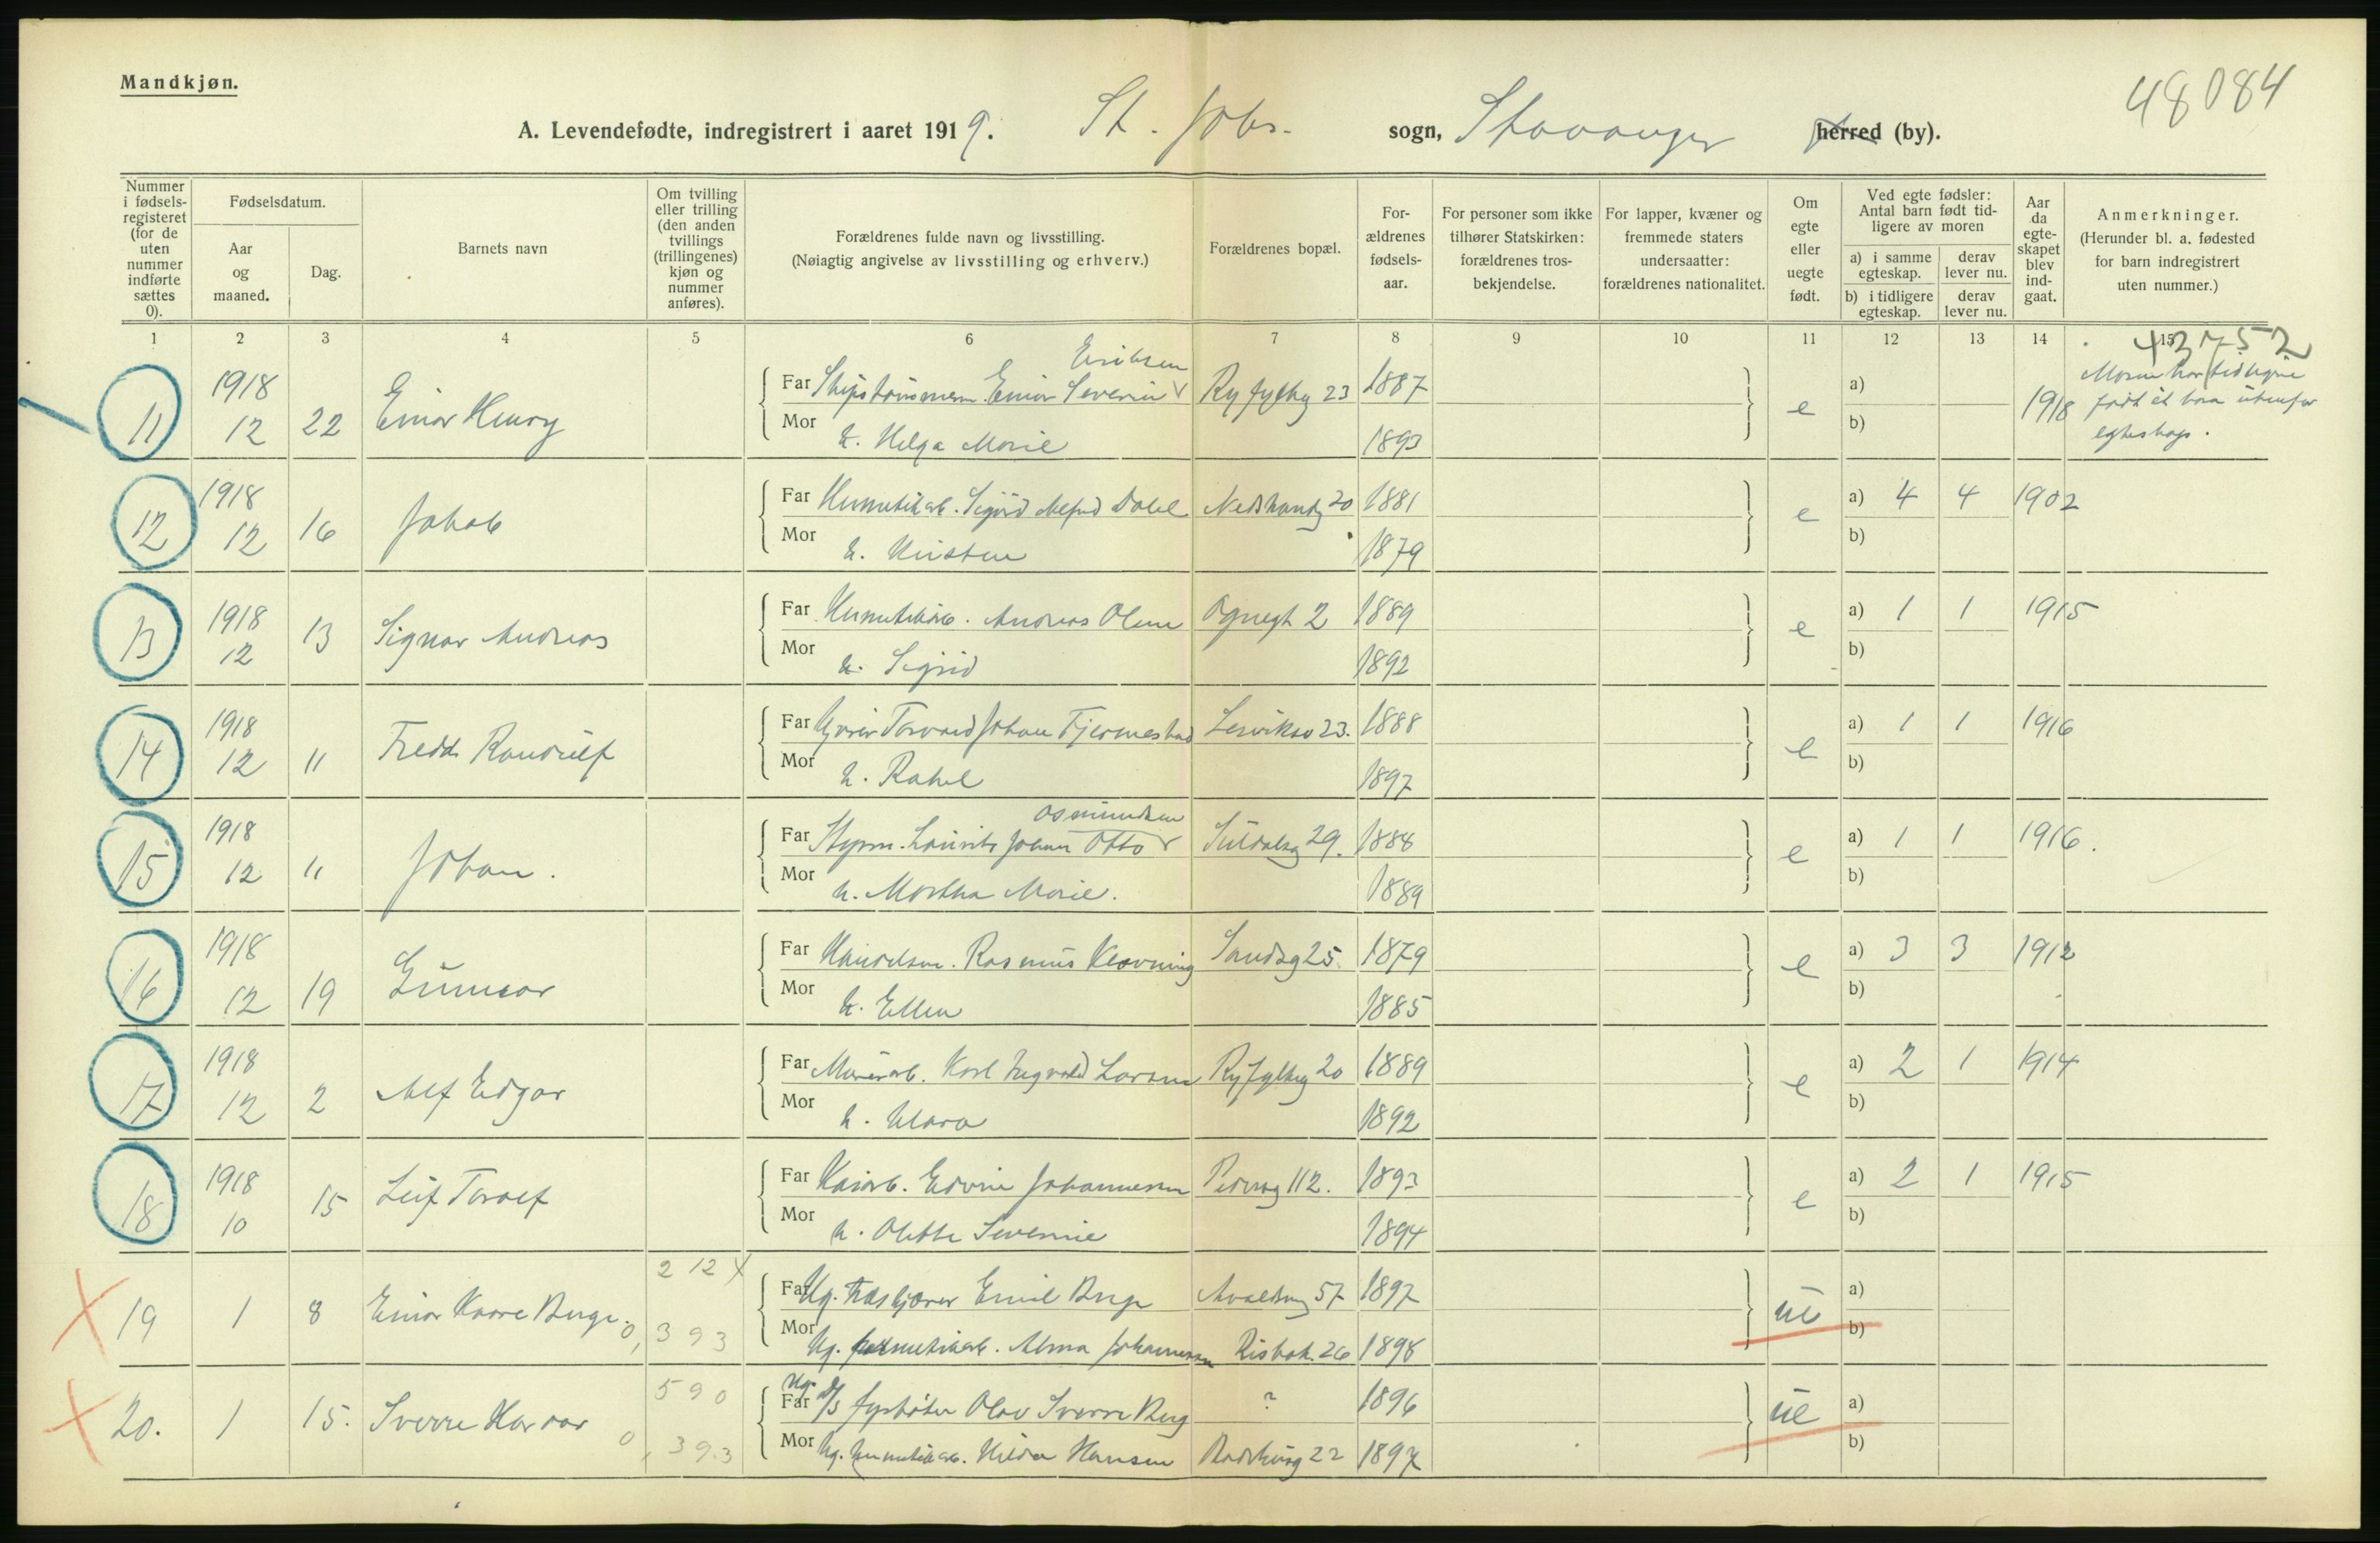 Mandkjøn.
48084
A. Levendefødte, indregistrert i aaret 1919. St. Johs. sogn, Stavanger herred (by).
Nummer i fødselsregisteret (for de uten nummer indførte sættes 0).
Fødselsdatum.
Aar og maaned.
Dag.
Barnets navn
Om tvilling eller trilling (den anden tvillings (trillingenes) kjøn og nummer anføres).
Forældrenes fulde navn og livsstilling.
(Nøiagtig angivelse av livsstilling og erhverv.)
Forældrenes bopæl.
Forældrenes fødselsaar.
For personer som ikke tilhører Statskirken: forældrenes trosbekjendelse.
For lapper, kvæner og fremmede staters undersaatter: forældrenes nationalitet.
Om egte eller uegte født.
Ved egte fødsler: Antal barn født tidligere av moren
a) i samme egteskap.
derav lever nu.
b) i tidligere egteskap.
derav lever nu.
Aar da egteskapet blev indgaat.
Anmerkninger.
(Herunder bl. a. fødested for barn indregistrert uten nummer.)
1 2 3 4 5 6 7 8 9 10 11 12 13 14 15
43752
Eriksen
11 1918 12 22 Einar Henry Far Skipstømmerm. Einar Severin Ryfylkg 23 1887 e a) b) 1918 Moren har tidligere født et barn utenfor egteskap.
Mor h. Helga Marie 1893
12 1918 12 16 Jakob Far Hermetikarb. Sigurd Alfred Dahl Nedstrandg 20 1881 e a) 4 4 1902
Mor h. Kirsten 1879 b)
13 1918 12 13 Signar Andreas Far Hermetikarb. Andreas Olsen Ognegt 2 1889 e a) 1 1 1915
Mor h. Sigrid 1892 b)
14 1918 12 11 Fredd Randulf Far Gyvrer Torvald Johan Tjermestad Lerviksv 23. 1888 e a) 1 1 1916
Mor h. Rakel 1897 b)
Osmundsen
15 1918 12 11 Johan. Far Styrm. Laurits Johan Otto Suldalsg 29. 1888 e a) 1 1 1916.
Mor h. Martha Marie. 1889 b)
16 1918 12 19 Gunnar Far Handelsm. Rasmus Klovning Sandsg 25. 1879 e a) 3 3 1912
Mor h. Ellen 1885 b)
17 1918 12 2 Alf Edgar Far Murerarb. Karl Ingvald Larsen Ryfylkg 20 1889 e a) 2 1 1914
Mor h. Klara 1892 b)
18 1918 10 15 Leif Toralf Far Kaiarb. Edvin Johannesen Pedersg 112. 1893 e a) 2 1 1915
Mor h. Olette Severine 1894 b)
19 1 8 Einar Kaare Berge. 212 X Far Ug. Emil Berge Avaldsng 57 1897 ue a)
0, 393 Mor Ug. hermetikarb. Alma Johannesen Risbak. 26 1898 b)
20. 1 15. Sverre Harvar 590 Far Ug. D/S fyrbøter Olav Sverre Berg ? 1896 ue a)
0, 393 Mor Ug. hermetikarb. Hilda Hansen Radhusg 22 1897 b)